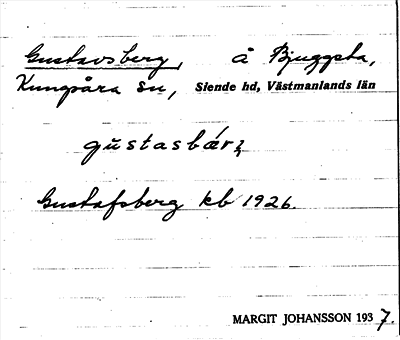 Gustavsberg, å Bjuggsta,
Kungsåra sn, Siende hd, Västmanlands län
gŭstasbárʒ
Gustafsberg kb 1926.
MARGIT JOHANSSON 1937.